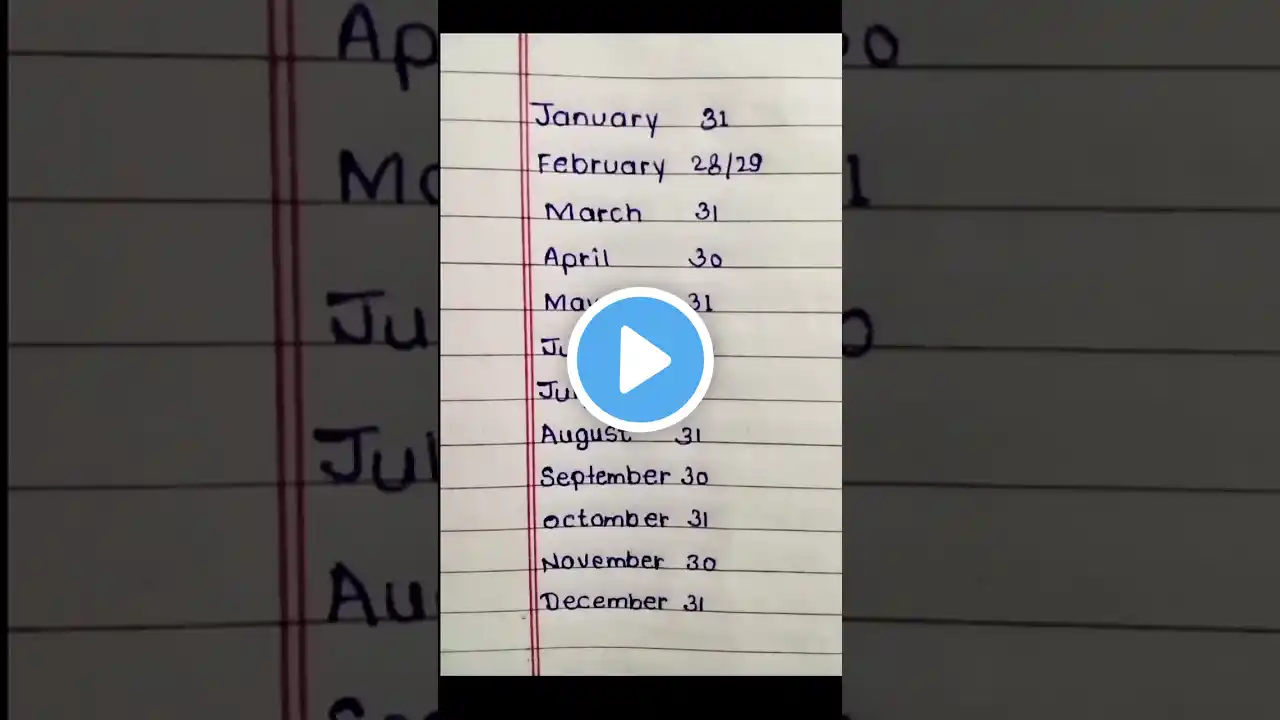 January 31
February 28/29
March 31
April 30
May 31
August 31
September 30
octomber 31
November 30
December 31